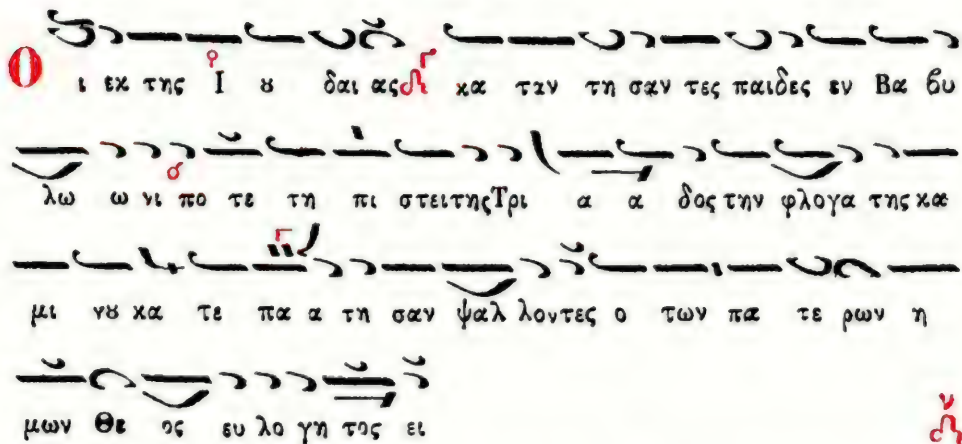 Οι εκ της Ι ȣ δαι ας κα ταν τη σαν τες παιδες εν Βα βυ
λω ω νι πο τε τη πι στει της Τρι α α δος την φλογα της κα
μι νȣ κα τε πα α τη σαν ψαλ λοντες ο των πα τε ρων η
μων Θε ος ευ λο γη τος ει